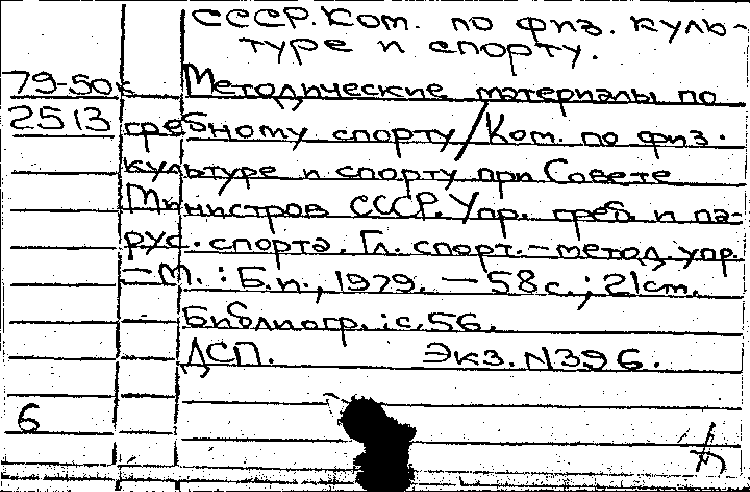 СССР. Ком. по физ. куль-
туре и спорту.
79-50к Методические материалы по
2513 гребному спорту/Ком. по физ.
культуре и спорту при Совете
Министров СССР. Упр. греб. и па-
рус. спорта. Гл. спорт.-метод. упр.
— М. : Б.и., 1979. — 58 с.; 21 см.
Библиогр.: с. 56.
ДСП. Экз. N 396.
6